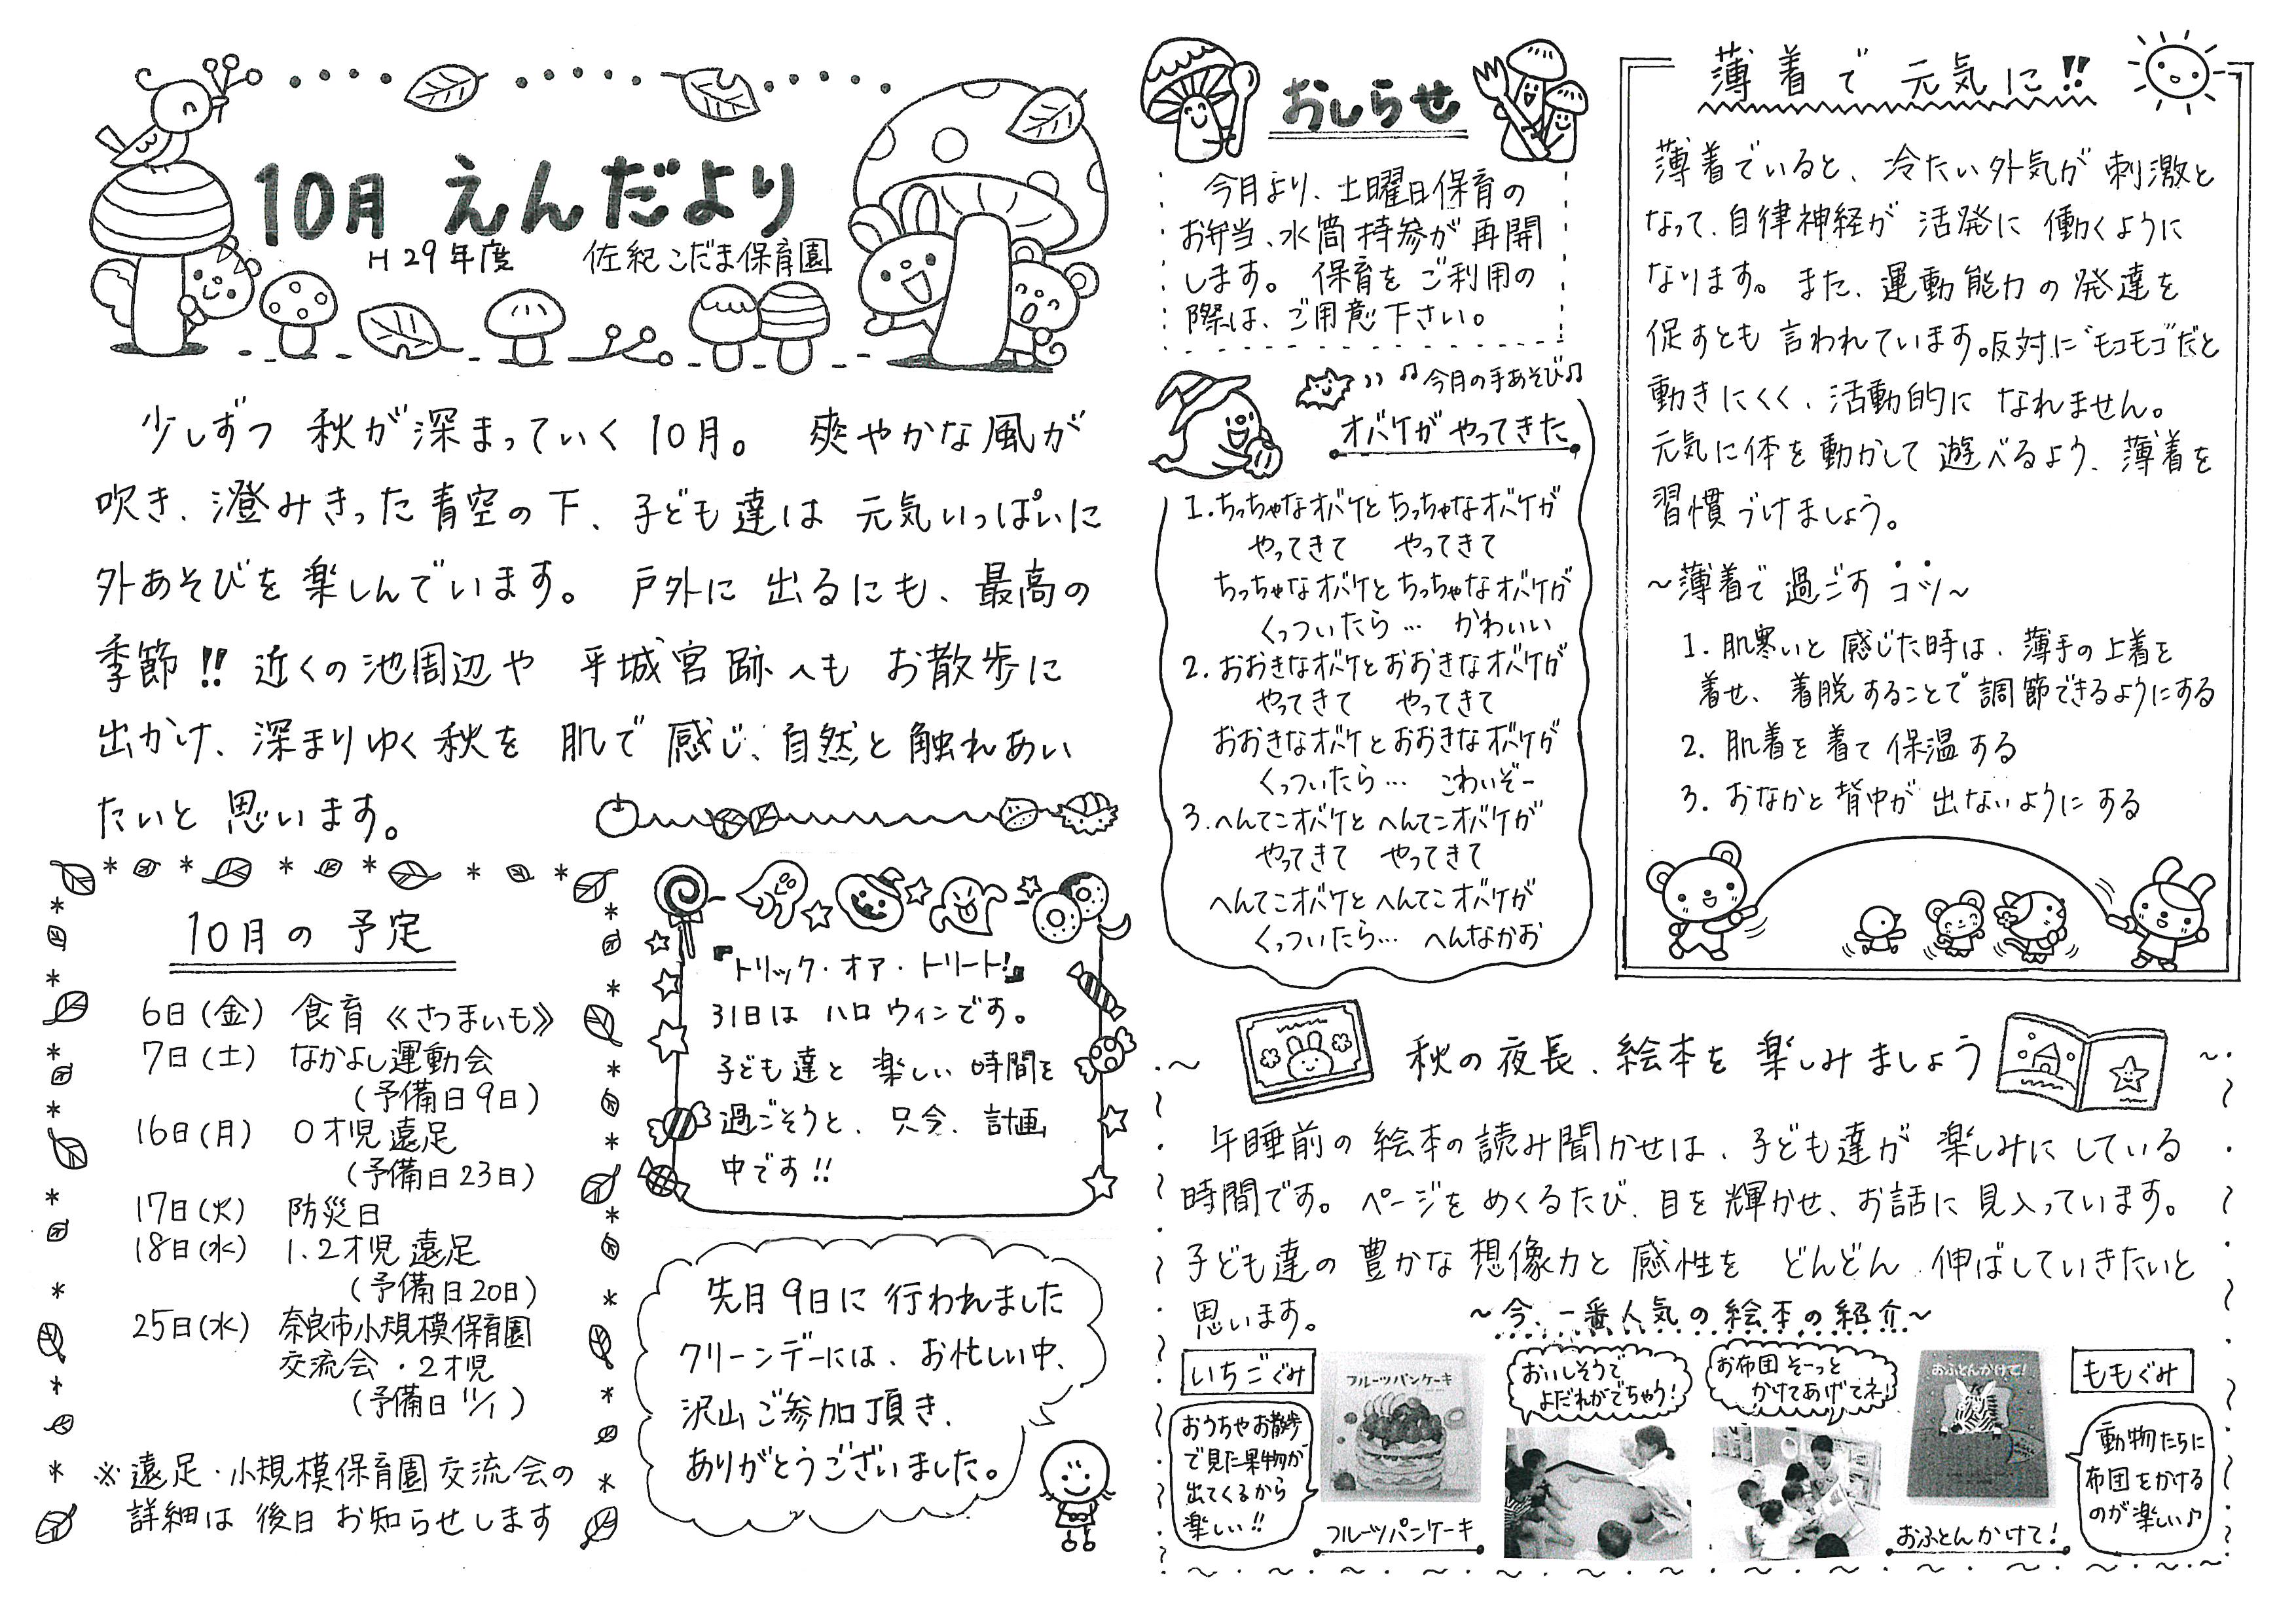 10月 えんだより
H29年度 佐紀こだま保育園
少しずつ 秋が深まっていく10月。 爽やかな風が
吹き、澄みきった青空の下、子ども達は 元気いっぱいに
外あそびを楽しんでいます。 戸外に 出るにも、最高の
季節!! 近くの池周辺や 平城宮跡へも お散歩に
出かけ、深まりゆく秋を 肌で 感じ、自然と触れあい
たいと 思います。
10月の 予定
6日(金) 食育《さつまいも》
7日(土) なかよし運動会
(予備日9日)
16日(月) 0才児遠足
(予備日23日)
17日(火) 防災日
18日(水) 1.2才児遠足
(予備日20日)
25日(水) 奈良市小規模保育園
交流会・2才児
(予備日 11/1)
※遠足・小規模保育園交流会の
詳細は 後日 お知らせします
『トリック・オア・トリート!』
31日は ハロウィンです。
子ども達と 楽しい 時間を
過ごそうと、只今、計画
中です!!
先月9日に行われました
クリーンデーには、お忙しい中、
沢山ご参加頂き、
ありがとうございました。
おしらせ
今月より、土曜日保育の
お弁当、水筒持参が再開
します。 保育を ご利用の
際は、ご用意下さい。
♫今月の手あそび♫
オバケが やってきた
1.ちっちゃなオバケと ちっちゃなオバケが
やってきて やってきて
ちっちゃなオバケと ちっちゃなオバケが
くっついたら… かわいい
2.おおきなオバケとおおきなオバケが
やってきて やってきて
おおきなオバケとおおきなオバケが
くっついたら… こわいぞー
3.へんてこオバケと へんてこオバケが
やってきて やってきて
へんてこオバケと へんてこオバケが
くっついたら… へんなかお
薄着で 元気に!!
薄着でいると、冷たい外気が 刺激と
なって、自律神経が 活発に 働くように
なります。また、運動能力の発達を
促すとも 言われています。反対に"モコモコ"だと
動きにくく、活動的に なれません。
元気に体を動かして 遊べるよう、薄着を
習慣づけましょう。
~薄着で 過ごす コツ~
1. 肌寒いと 感じた時は、薄手の上着を
着せ、着脱することで調節できるようにする
2. 肌着を着て保温する
3. おなかと背中が 出ないようにする
秋の夜長、絵本を 楽しみましょう
午睡前の 絵本の読み聞かせは、子ども達が 楽しみにしている
時間です。ページを めくるたび、目を輝かせ、お話に見入っています。
子ども達の 豊かな 想像力と 感性を どんどん 伸ばしていきたいと
思います。
~今、一番人気の絵本の紹介~
いちごぐみ
おうちやお散歩
で見た果物が
出てくるから
楽しい!!
フルーツパンケーキ
フルーツパンケーキ
おいしそうで
よだれがでちゃう!
お布団 そーっと
かけてあげてネ!
おふとんかけて!
おふとんかけて!
ももぐみ
動物たちに
布団をかける
のが楽しい♪